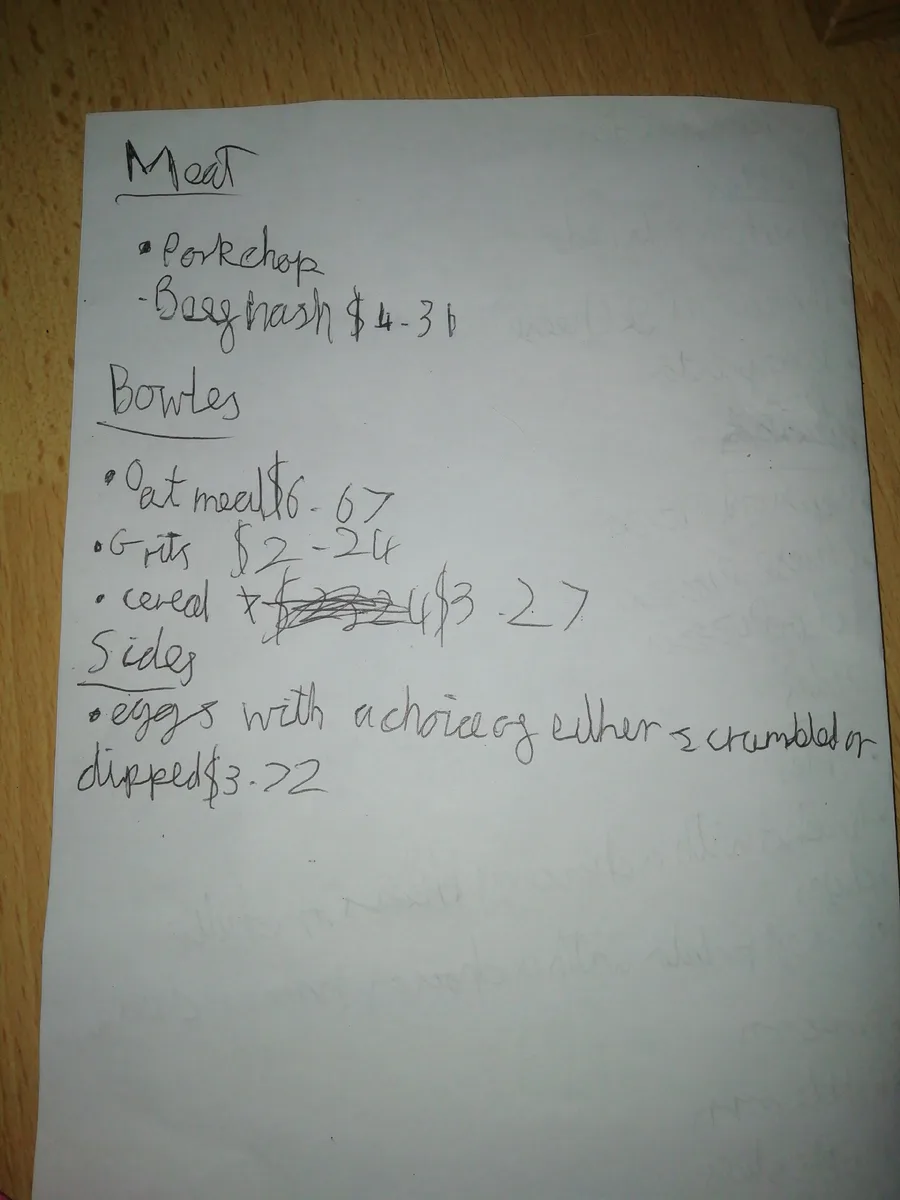 Meat
• Porkchop
- Beeg hash $4-31
Bowles
• Oatmeal $6-67
• Grits $2-24
• cereal $3.27
Sides
• eggs with a choice of either scrambled or
dipped $3.22